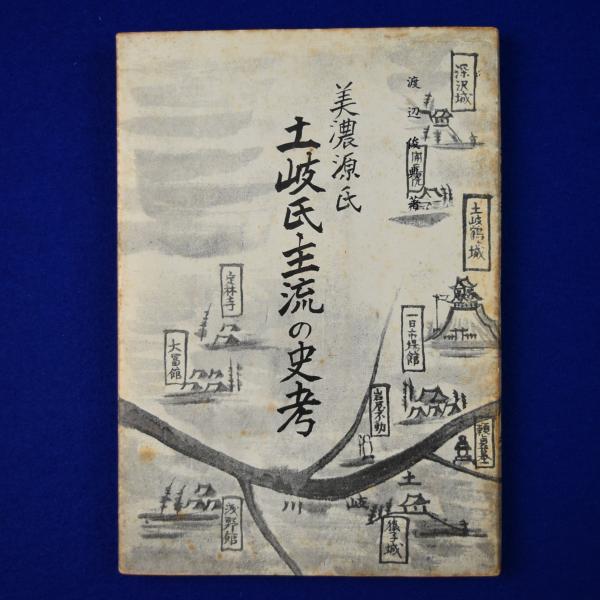 美濃源氏
土岐氏主流の史考
渡辺俊典著
深沢城
開元院
土岐鶴ヶ城
一日市場館
定林寺
大冨館
岩屋不動
頼貞墓
土岐川
浅野館
猿子城